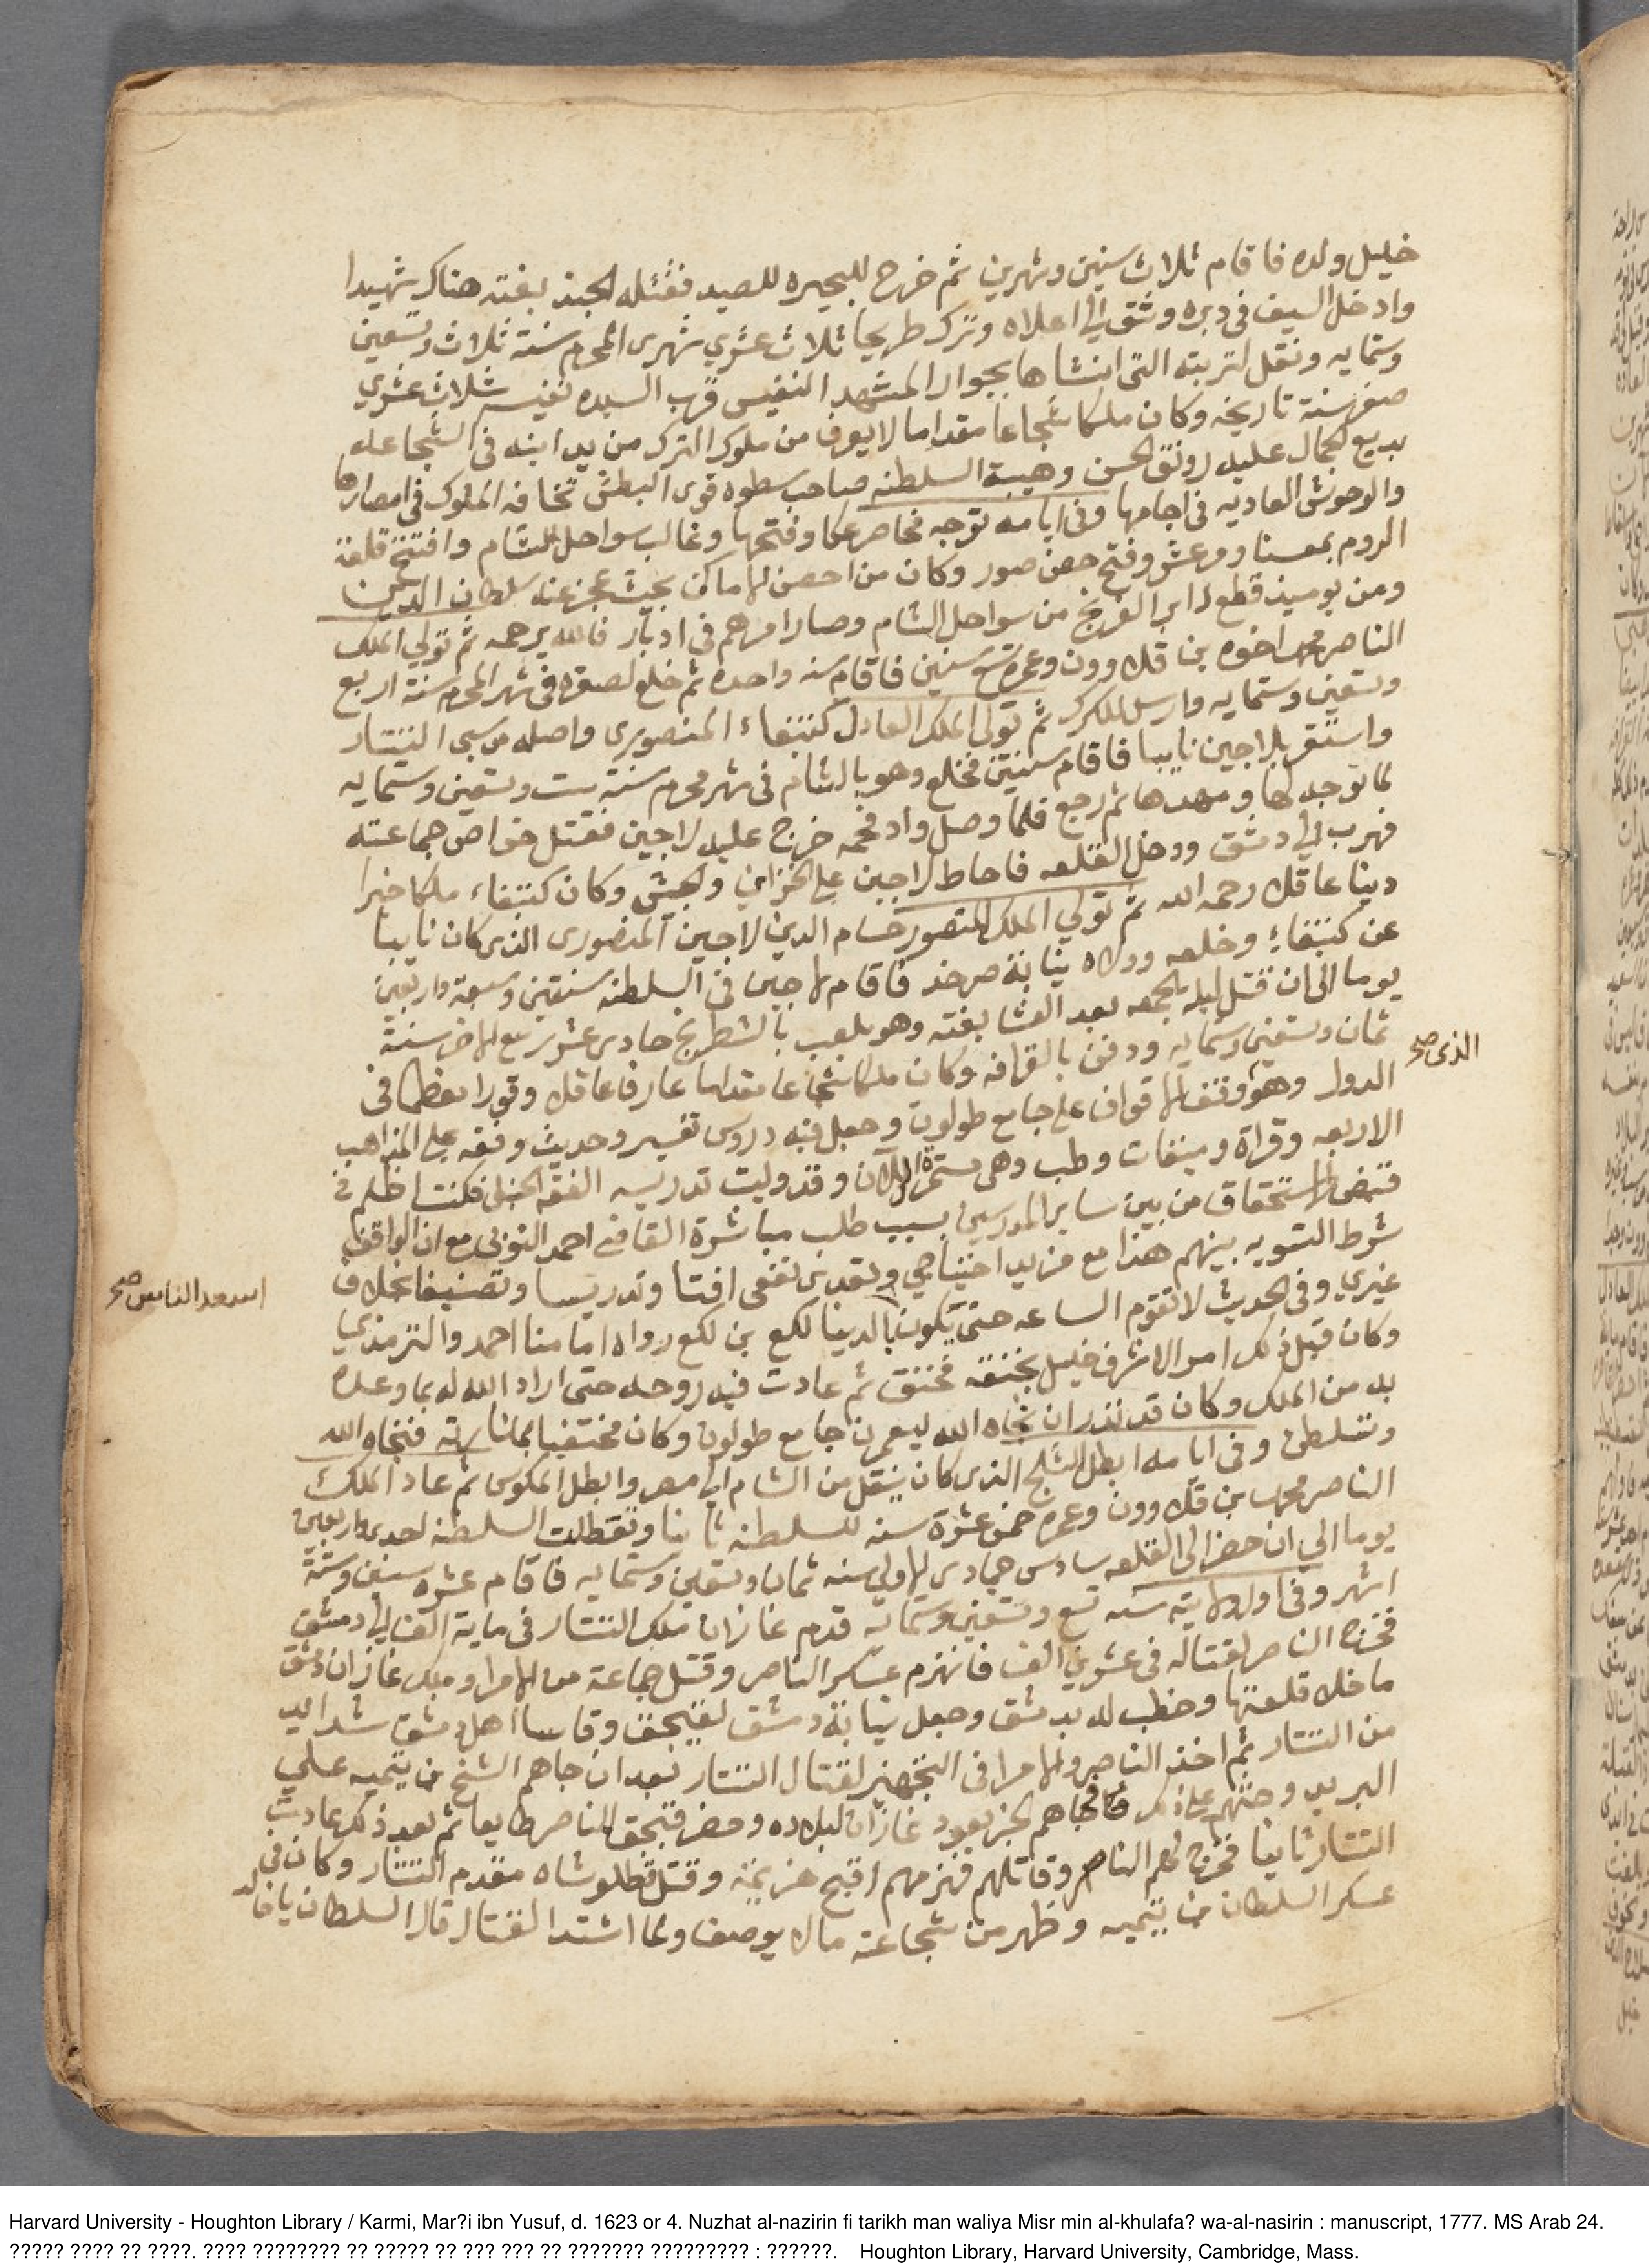 خليل ولده فاقام ثلاث سنين وشهرين ثم خرج للبحيره للصيد فقتله الجند بغته هناك شهيدا
وادخل السيف في دبره وشق الي اعلاه وترك طريحا ثلاث عشري شهر المحرم سنة ثلاث وتسعين
وستمايه ونقل لتربته التي انشاها بجوار المشهد النفيسي قرب السيده نفيسه ثلاث عشري
صفر سنة تاريخه وكان ملكا شجاعا مقداما لا يعرف من ملوك الترك من يدانيه في الشجاعه
بديع الجمال عليه رونق الحسن وهيبة السلطنه صاحب سطوه قوي البطش تخافه الملوك في امصارها
والوحوش العاديه في اجامها وفي ايامه توجه فحاصر عكا وفتحها وغالب سواحل الشام وافتتح قلعة
الروم بهسنا ومرعش وفتح حصن صور وكان من احصن الاماكن بحيث عجز عنه سلطان الدين
ومن يوميذ قطع دابر الفرنج من سواحل الشام وصار امرهم في ادبار فالله يرحمه ثم تولي الملك
الناصر محمد اخوه بن قلاوون وعمره تسع سنين فاقام سنه واحده ثم خلع لصغره في شهر المحرم سنة اربع
وتسعين وستمايه وارسل للكرك ثم تولي الملك العادل كتبغاء المنصوري واصله من سبي التتار
واستقر بلاجين نايبا فاقام سنتين فخلع وهو بالشام في شهر محرم سنة ست وتسعين وستمايه
لما توجه لها ومهدها ثم رجع فلما وصل واد فحمه خرج عليه لاجين فقتل خواص جماعته
فهرب الي دمشق ودخل القلعه فاحاط لاجين علي الخزاين والجيش وكان كتبغاء ملكا خيرا
دينا عاقلا رحمه الله ثم تولي الملك المنصور حسام الدين لاجين المنصوري الذي كان نايبا
عن كتبغاء وخلعه وولاه نيابة صرخد فاقام لاجين في السلطنه سنتين وسبعة واربعين
يوما الي ان قتل ليلة الجمعه بعد العشا بغته وهو يلعب بالشطرنج حادي عشر ربيع الاخر سنة
ثمان وتسعين وستمايه ودفن بالقرافه وكان ملكا شجاعا مقداما عارفا عاقلا وقورا معظما في
الذي صح
الدول وهو وقف الاوقاف علي جامع طولون وجعل فيه دروس تفسير وحديث وفقه علي المذاهب
الاربعه وقراة وميقات وطب وهي مستمرة الي الان وقد وليت تدريسه الفقه الحنبلي فكنت اظلم في
قبض الاستحقاق من بين ساير المدرسين بسبب طلب مباشرة القاضي احمد النوبي مع ان الواقف
شرط التسويه بينهم هذا مع مزيد احتياجي وتعدي نفعي افتا وتدريسا وتصنيفا بخلاف
غيري وفي الحديث لا تقوم الساعه حتي يكون بالدنيا لكع بن لكع رواه امامنا احمد والترمذي
اسعد الناس صح
وكان قبل ذلك امر الاشرف خليل بخنقه فخنق ثم عادت فيه روحه حتي اراد الله له بما وعده
به من الملك وكان قد نذر ان نجاه الله ليعمرن جامع طولون وكان مختفيا بمنارته فنجاه الله
وتسلطن وفي ايامه ابطل الثلج الذي كان ينقل من الشام الي مصر وابطل المكوس ثم عاد الملك
الناصر محمد بن قلاوون وعمره خمس عشرة سنه للسلطنه ثانيا وتعطلت السلطنة احدي واربعين
يوما الي ان حضر الي القلعه سادس جمادي الاولي سنه ثمان وتسعين وستمايه فاقام عشره سنين وستة
اشهر وفي اول ولايته سنه تسع وتسعين وستمايه قدم غازان ملك التتار في ماية الف الي دمشق
فخرج الناصر لقتاله في عشرين الف فانهزم عسكر الناصر وقتل جماعة من الامرا وملك غازان دمشق
ما خلا قلعتها وخطب له بدمشق وجعل نيابة دمشق لقبجق وقاسا اهل دمشق شدايد
من التتار ثم اخذ الناصر والامرا في التجهيز لقتال التتار بعد ان جاهم الشيخ بن تيميه علي
البريد وحثهم علي ذلك فجاهم الخبر بعود غازان لبلاده وحضر قبجق للناصر طايعا ثم بعد ذلك عادت
التتار ثانيا فخرج لهم الناصر وقاتلهم فهزمهم اقبح هزيمة وقتل قطلوشاه مقدم التتار وكان في
عسكر السلطان بن تيميه وظهر من شجاعته ما لا يوصف ولما اشتد القتال قال السلطان يا خالد
Harvard University - Houghton Library / Karmi, Mar?i ibn Yusuf, d. 1623 or 4. Nuzhat al-nazirin fi tarikh man waliya Misr min al-khulafa? wa-al-nasirin : manuscript, 1777. MS Arab 24.
????? ???? ?? ????. ???? ???????? ?? ????? ?? ??? ??? ?? ??????? ????????? : ??????. Houghton Library, Harvard University, Cambridge, Mass.